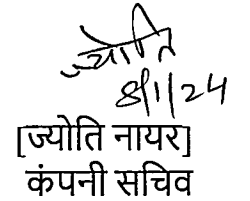 ज्योति
8/1/24
[ज्योति नायर]
कंपनी सचिव